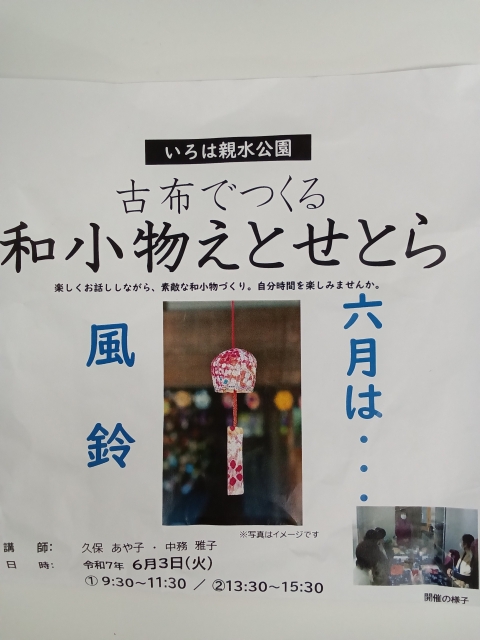 いろは親水公園
古布でつくる
和小物えとせとら
楽しくお話ししながら、素敵な和小物づくり。自分時間を楽しみませんか。
六月は・・・
風鈴
※写真はイメージです
講　師:　久保 あや子 ・ 中務 雅子
日　時:　令和7年 6月3日(火)
①9:30～11:30 ／ ②13:30～15:30
開催の様子